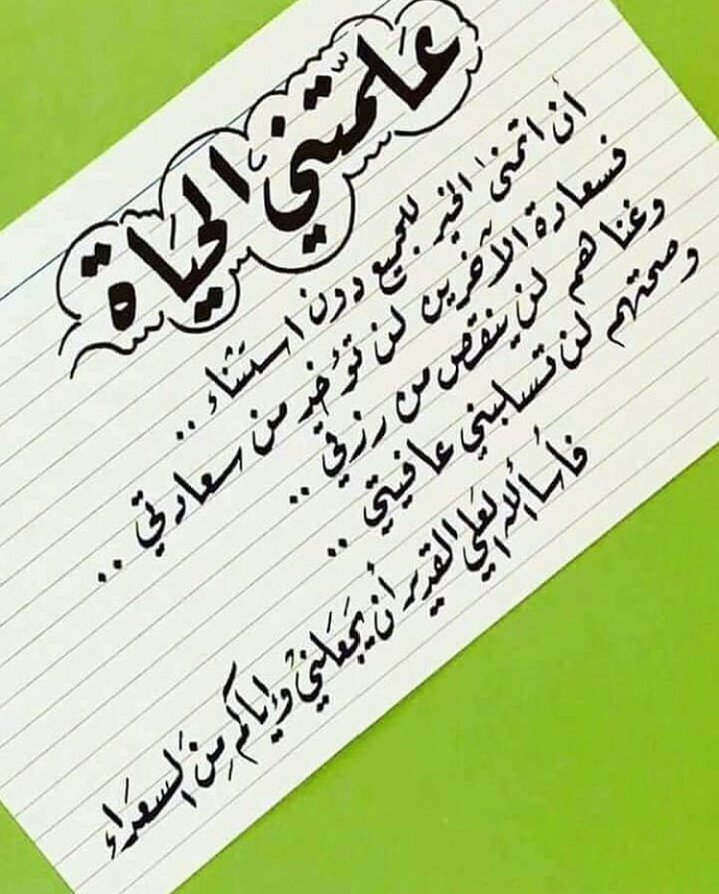 علمتني الحياة
أن اتمنى الخير للجميع دون استثناء ..
فسعادة الآخرين لن تؤخذ من سعادتي ..
وغناهم لن ينقص من رزقي ..
وصحتهم لن تسلبني عافيتي ..
فأسأل الله العلي القدير أن يجعلني وإياكم من السعداء